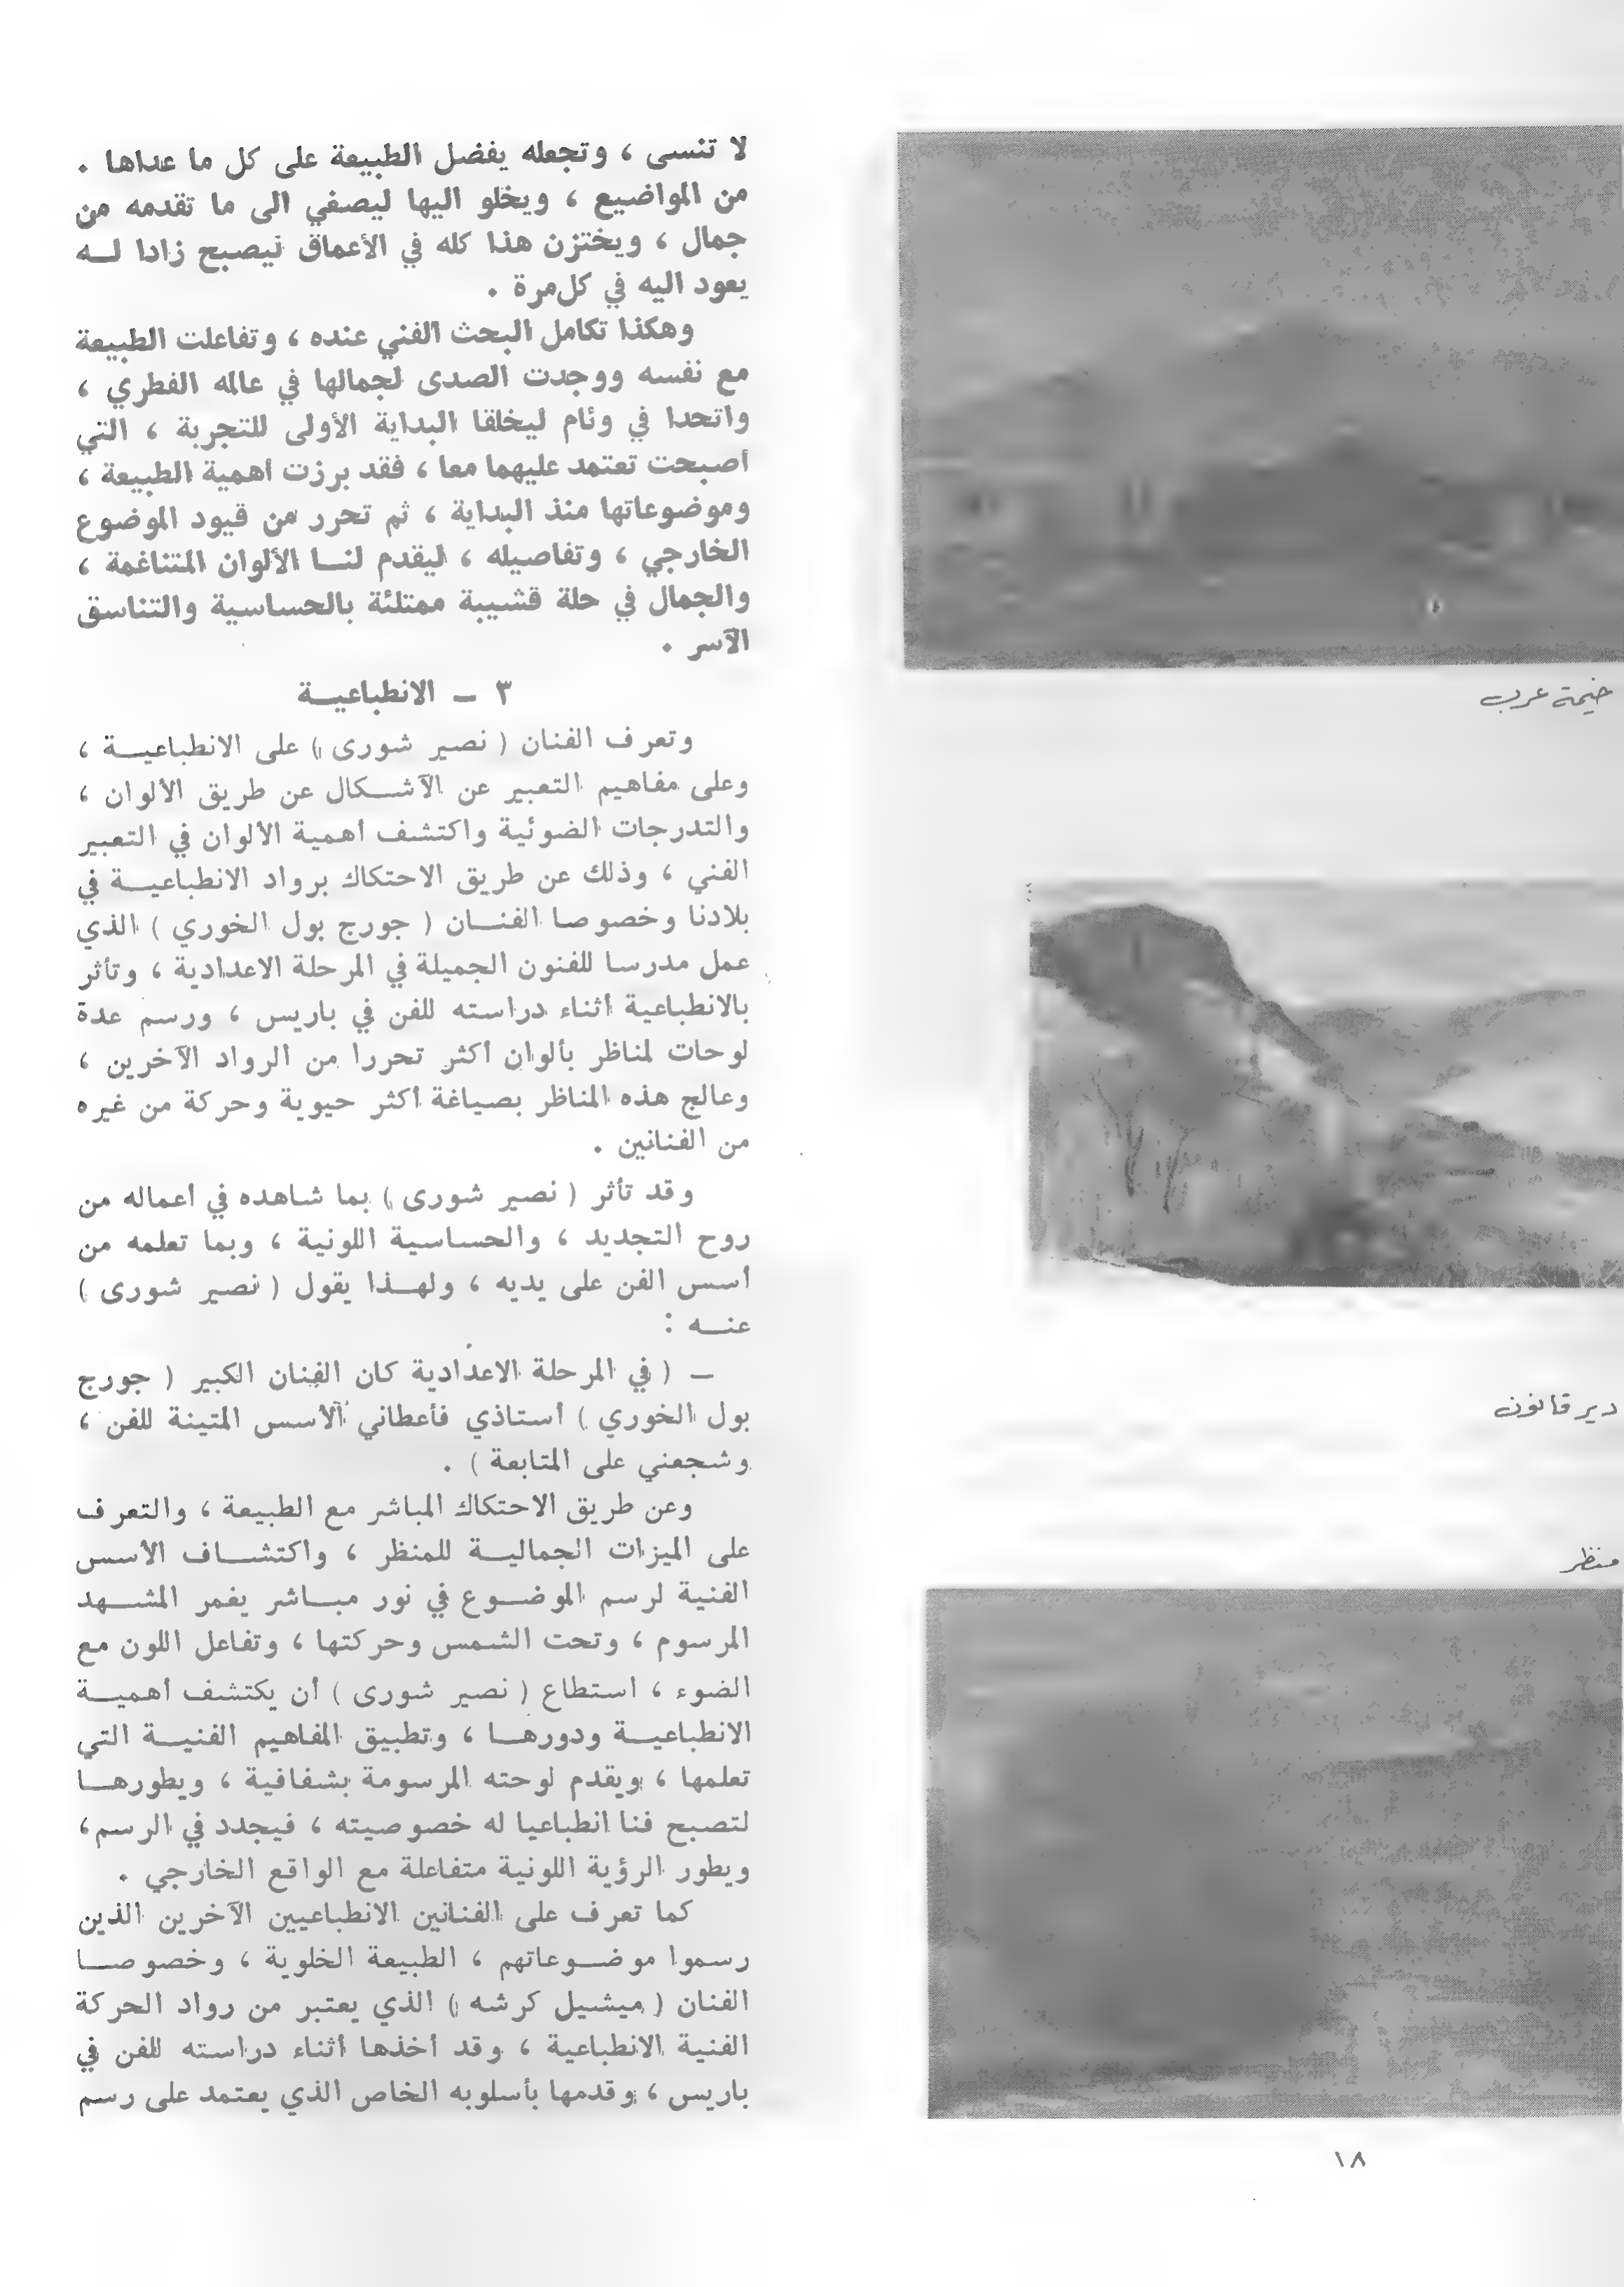 خيمة عرب
دير قانون
منظر
لا تنسى ، وتجعله يفضل الطبيعة على كل ما عداها .
من المواضيع ، ويخلو اليها ليصغي الى ما تقدمه من
جمال ، ويختزن هذا كله في الأعماق فيصبح زادا لــه
يعود اليه في كل مرة .
وهكذا تكامل البحث الفني عنده ، وتفاعلت الطبيعة
مع نفسه ووجدت الصدى لجمالها في عالمه الفطري ،
واتحدا في وئام ليخلقا البداية الأولى للتجربة ، التي
أصبحت تعتمد عليهما معا ، فقد برزت أهمية الطبيعة ،
وموضوعاتها منذ البداية ، ثم تحرر من قيود الموضوع
الخارجي ، وتفاصيله ، ليقدم لنــا الألوان المتناغمة ،
والجمال في حلة قشيبة ممتلئة بالحساسية والتناسق
الآسر .
٣ ــ الانطباعيــة
وتعرف الفنان ( نصير شورى ) على الانطباعيــة ،
وعلى مفاهيم التعبير عن الآشــكال عن طريق الألوان ،
والتدرجات الضوئية واكتشف أهمية الألوان في التعبير
الفني ، وذلك عن طريق الاحتكاك برواد الانطباعيــة في
بلادنا وخصوصا الفنــان ( جورج بول الخوري ) الذي
عمل مدرسا للفنون الجميلة في المرحلة الاعدادية ، وتأثر
بالانطباعية أثناء دراسته للفن في باريس ، ورسم عدة
لوحات لمناظر بألوان أكثر تحررا من الرواد الآخرين ،
وعالج هذه المناظر بصياغة أكثر حيوية وحركة من غيره
من الفنانين .
وقد تأثر ( نصير شورى ) بما شاهده في أعماله من
روح التجديد ، والحساسية اللونية ، وبما تعلمه من
أسس الفن على يديه ، ولهــذا يقول ( نصير شورى )
عنــه :
ــ ( في المرحلة الاعدادية كان الفنان الكبير ( جورج
بول الخوري ) أستاذي فأعطاني الأسس المتينة للفن ،
وشجعني على المتابعة ) .
وعن طريق الاحتكاك المباشر مع الطبيعة ، والتعرف
على الميزات الجماليــة للمنظر ، واكتشــاف الأسس
الفنية لرسم الموضــوع في نور مبــاشر يغمر المشــهد
المرسوم ، وتحت الشمس وحركتها ، وتفاعل اللون مع
الضوء ، استطاع ( نصير شورى ) أن يكتشف أهميــة
الانطباعيــة ودورهــا ، وتطبيق المفاهيم الفنيــة التي
تعلمها ، ويقدم لوحته المرسومة بشفافية ، ويطورهــا
لتصبح فنا انطباعيا له خصوصيته ، فيجدد في الرسم ،
ويطور الرؤية اللونية متفاعلة مع الواقع الخارجي .
كما تعرف على الفنانين الانطباعيين الآخرين الذين
رسموا موضــوعاتهم ، الطبيعة الخلوية ، وخصوصــا
الفنان ( ميشيل كرشه ) الذي يعتبر من رواد الحركة
الفنية الانطباعية ، وقد أخذها أثناء دراسته للفن في
باريس ، وقدمها بأسلوبه الخاص الذي يعتمد على رسم
١٨